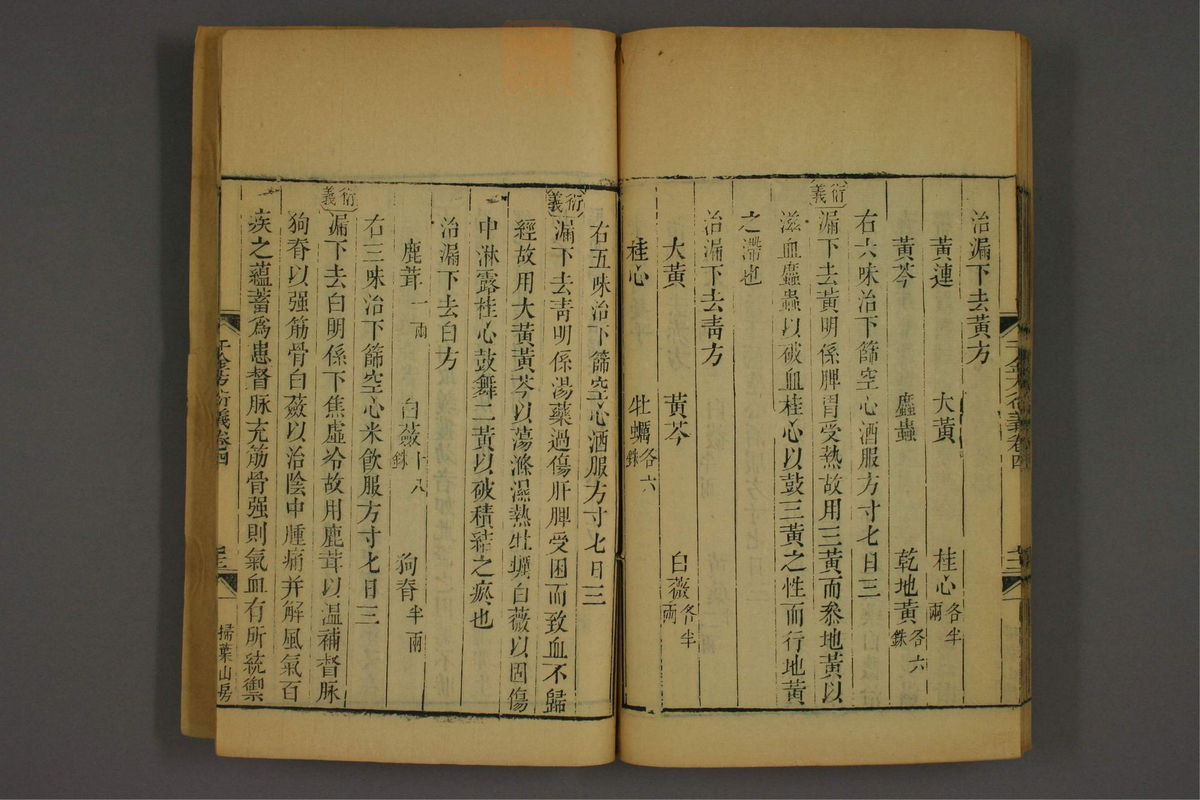 治漏下去黃方
黃連　大黃　桂心各半兩
黃芩　䗪蟲　乾地黃各六銖
右六味治下篩空心酒服方寸匕日三
衍義
漏下去黃明係脾胃受熱故用三黃而參地黃以
滋血䗪蟲以破血桂心以鼓三黃之性而行地黃
之滯也
治漏下去靑方
大黃　黃芩　白薇各半兩
桂心　牡蠣各六銖
右五味治下篩空心酒服方寸匕日三
衍義
漏下去靑明係湯藥過傷肝脾受困而致血不歸
經故用大黃黃芩以蕩滌濕熱牡蠣白薇以固傷
中淋露桂心鼓舞二黃以破積結之瘀也
治漏下去白方
鹿茸一兩　白薇十八銖　狗脊半兩
右三味治下篩空心米飮服方寸匕日三
衍義
漏下去白明係下焦虛冷故用鹿茸以溫補督脉
狗脊以强筋骨白薇以治陰中腫痛并解風氣百
疾之蘊蓄爲患督脉充筋骨强則氣血有所統禦
千金方衍義卷四
掃葉山房